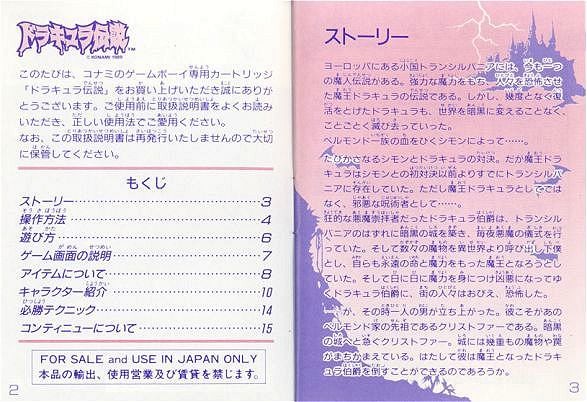 ドラキュラ伝説™
© KONAMI 1989
このたびは、コナミのゲームボーイ専用カートリッジ
「ドラキュラ伝説」をお買い上げいただき誠にありが
とうございます。ご使用前に取扱説明書をよくお読み
いただき、正しい使用法でご愛用ください。
なお、この取扱説明書は再発行いたしませんので大切
に保管してください。
もくじ
ストーリー 3
操作方法 4
遊び方 6
ゲーム画面の説明 7
アイテムについて 8
キャラクター紹介 10
必勝テクニック 14
コンティニューについて 15
FOR SALE and USE IN JAPAN ONLY
本品の輸出、使用営業及び賃貸を禁じます。
2
ストーリー
ヨーロッパにある小国トランシルバニアには、今も一つ
の魔人伝説がある。強力な魔力をもち、人々を恐怖させ
た魔王ドラキュラの伝説である。しかし、幾度となく復
活をとげたドラキュラも、世界を暗黒に変えることなく、
ことごとく滅び去っていった。
ベルモンド一族の血をひくシモンによって……。
たびかさなるシモンとドラキュラの対決。だが魔王ドラ
キュラはシモンとの初対決以前よりすでにトランシルバ
ニアに存在していた。ただし魔王ドラキュラとしてでは
なく、邪悪な呪術者として……。
狂的な悪魔崇拝者だったドラキュラ伯爵は、トランシル
バニアのはずれに暗黒の城を築き、毎夜悪魔の儀式を行
っていた。そして数々の魔物を異世界より呼び出し下僕
とし、自らも永遠の命と魔力をもった魔王となろうとし
ていた。そして日に日に魔力を身につけ凶悪になってゆ
くドラキュラ伯爵に、街の人々はおびえ、恐怖した。
が、その時一人の男が立ち上がった。彼こそがあの
ベルモンド家の先祖であるクリストファーである。暗黒
の城へと急ぐクリストファー。城には幾重もの魔物や罠
がまちかまえている。はたして彼は魔王となったドラキ
ュラ伯爵を倒すことができるのであろうか。
3